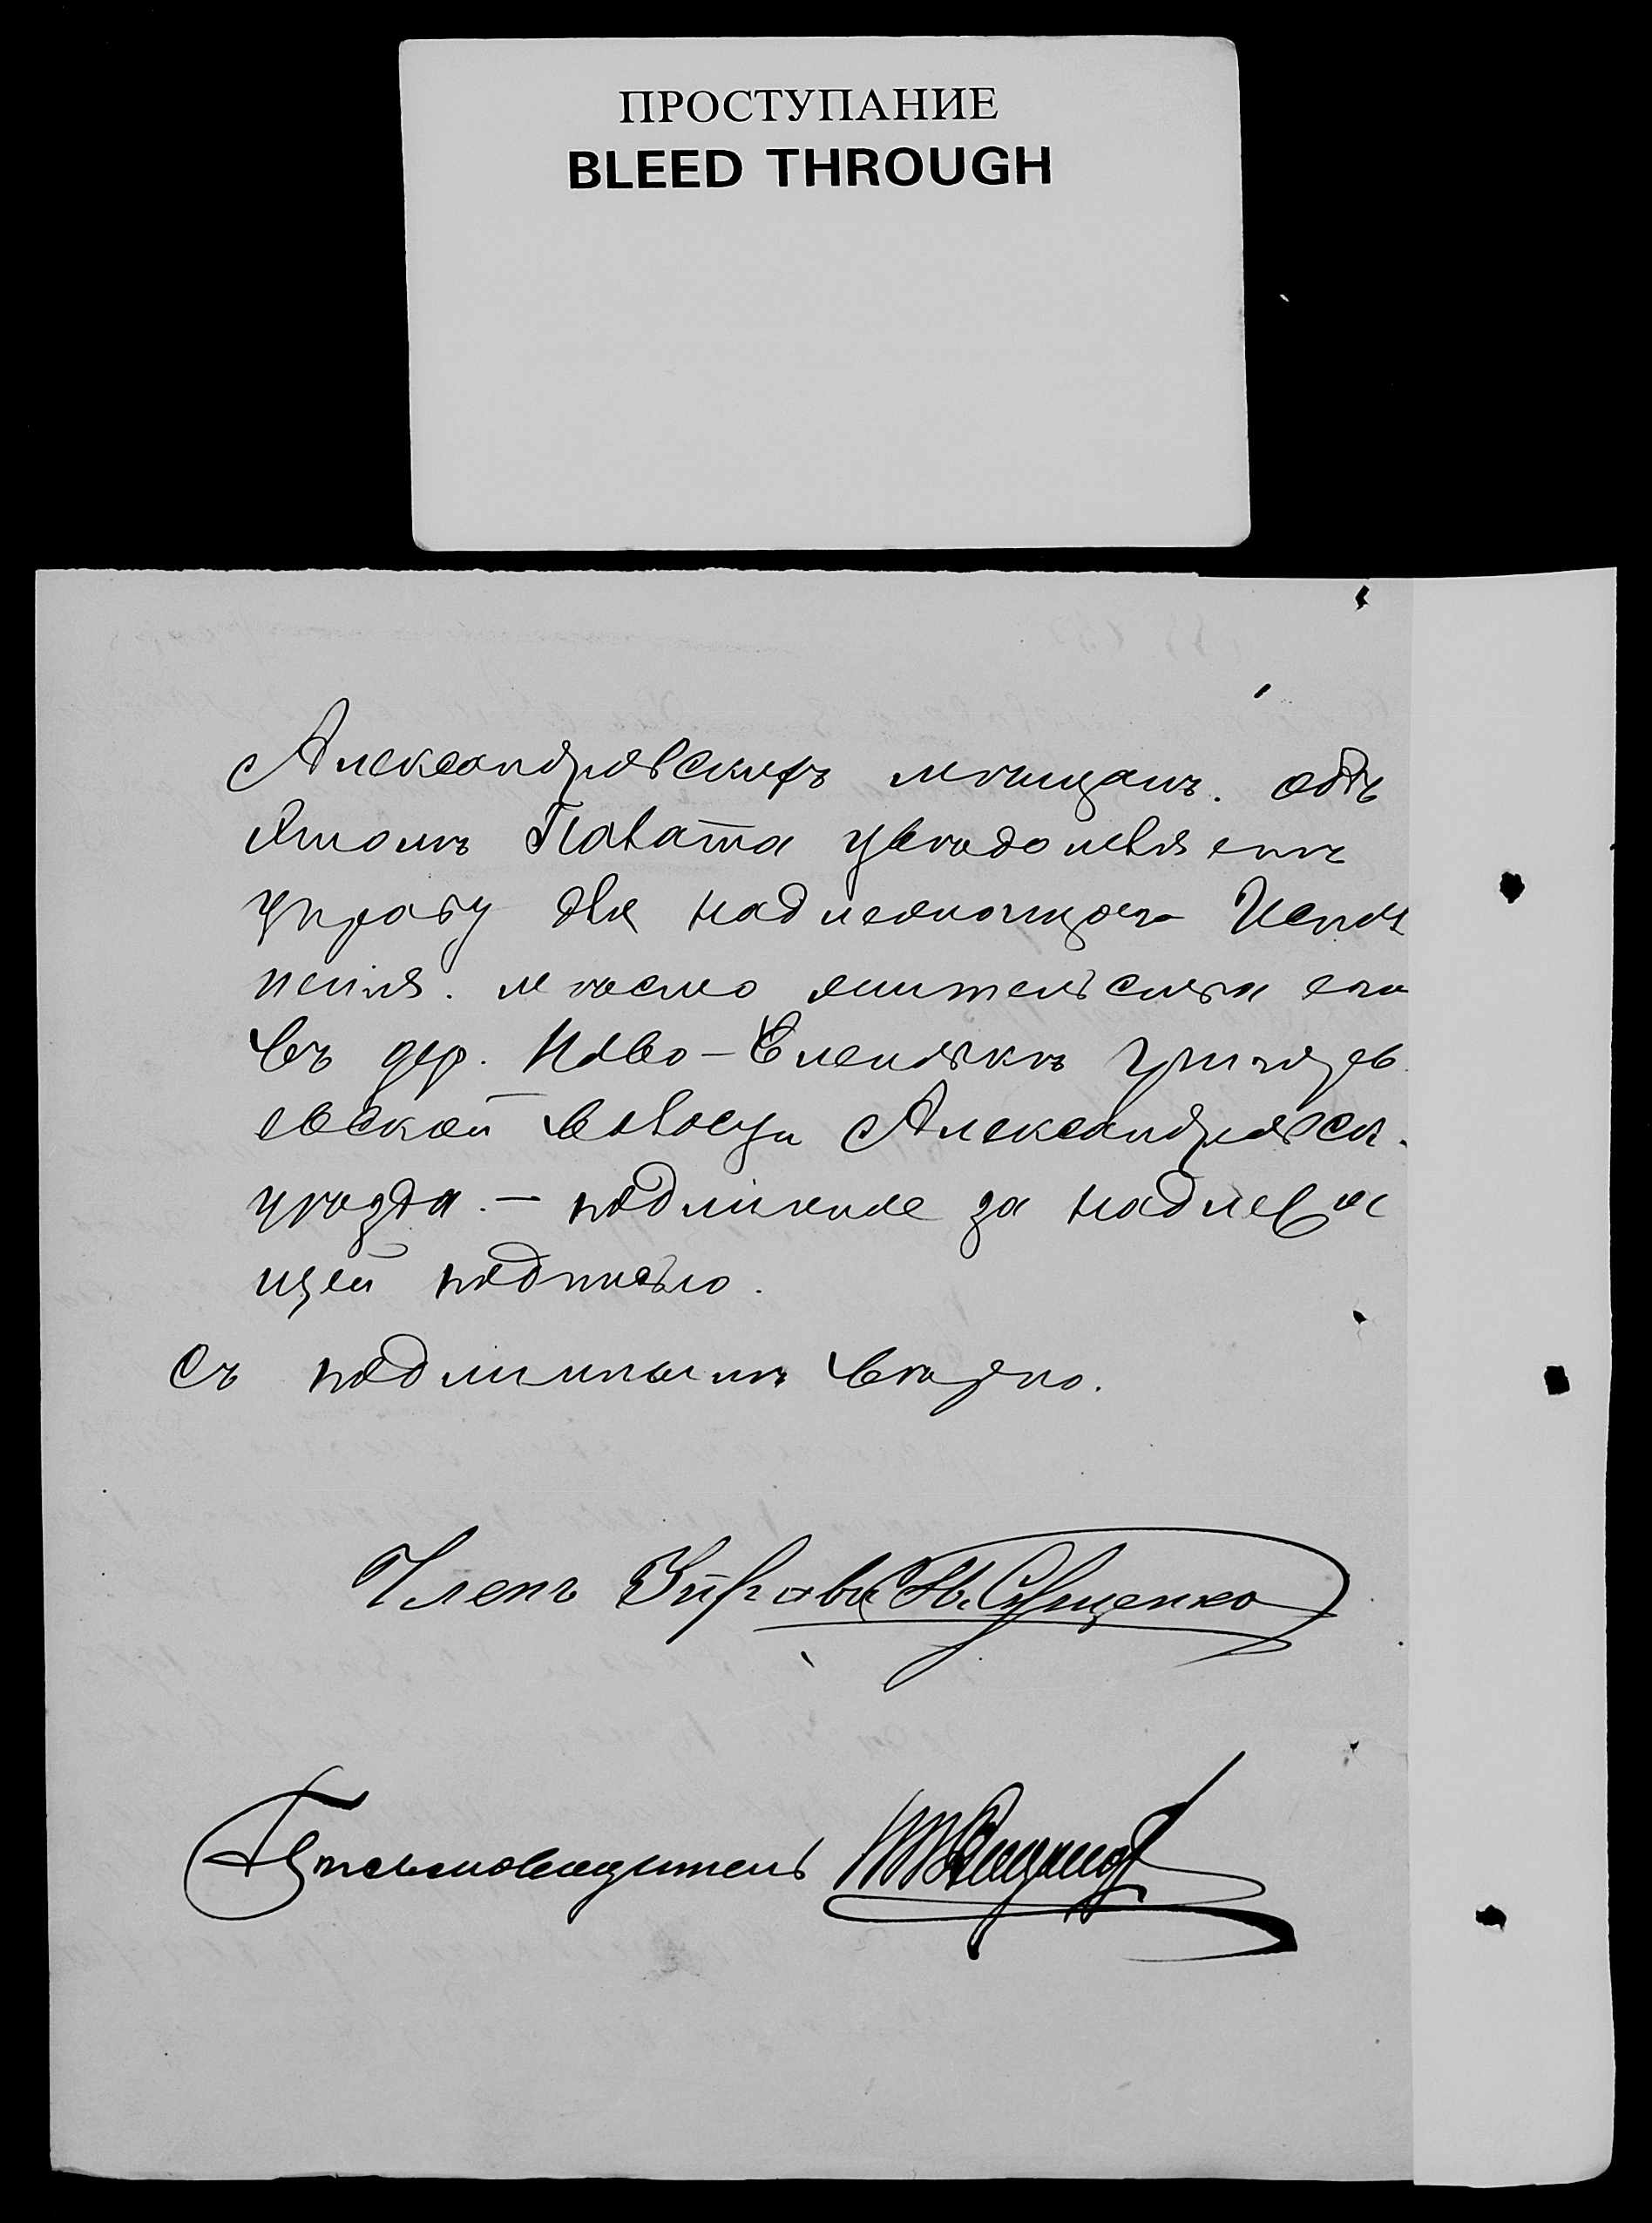 ПРОСТУПАНИЕ
BLEED THROUGH
Александровскихъ мѣщанъ. объ
этомъ Палата увѣдомляетъ
управу для надлежащаго Испол
ненія. мѣсто жительства его
въ дер. Ново-Еленовкѣ
евской волости Александровск.
уѣзда. — подлинное за надлежа
щей подписью.
Съ подлиннымъ вѣрно.
Членъ Управы
Письмоводитель